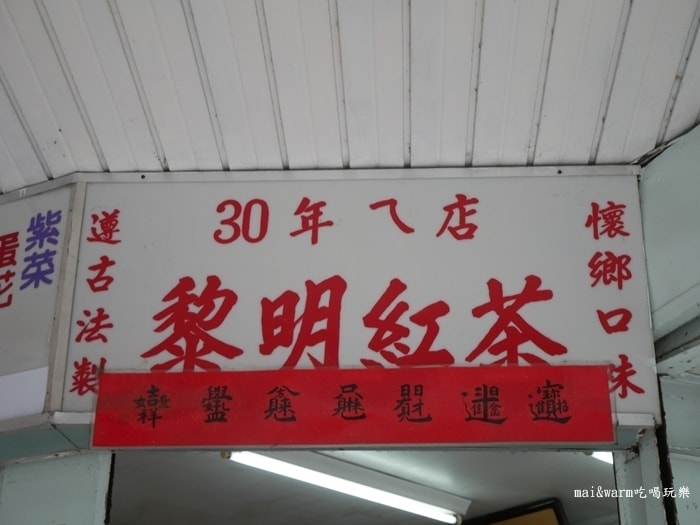 紫菜
蛋花
遵古法製
30年ㄟ店
黎明紅茶
懷鄉口味
mai&warm吃喝玩樂